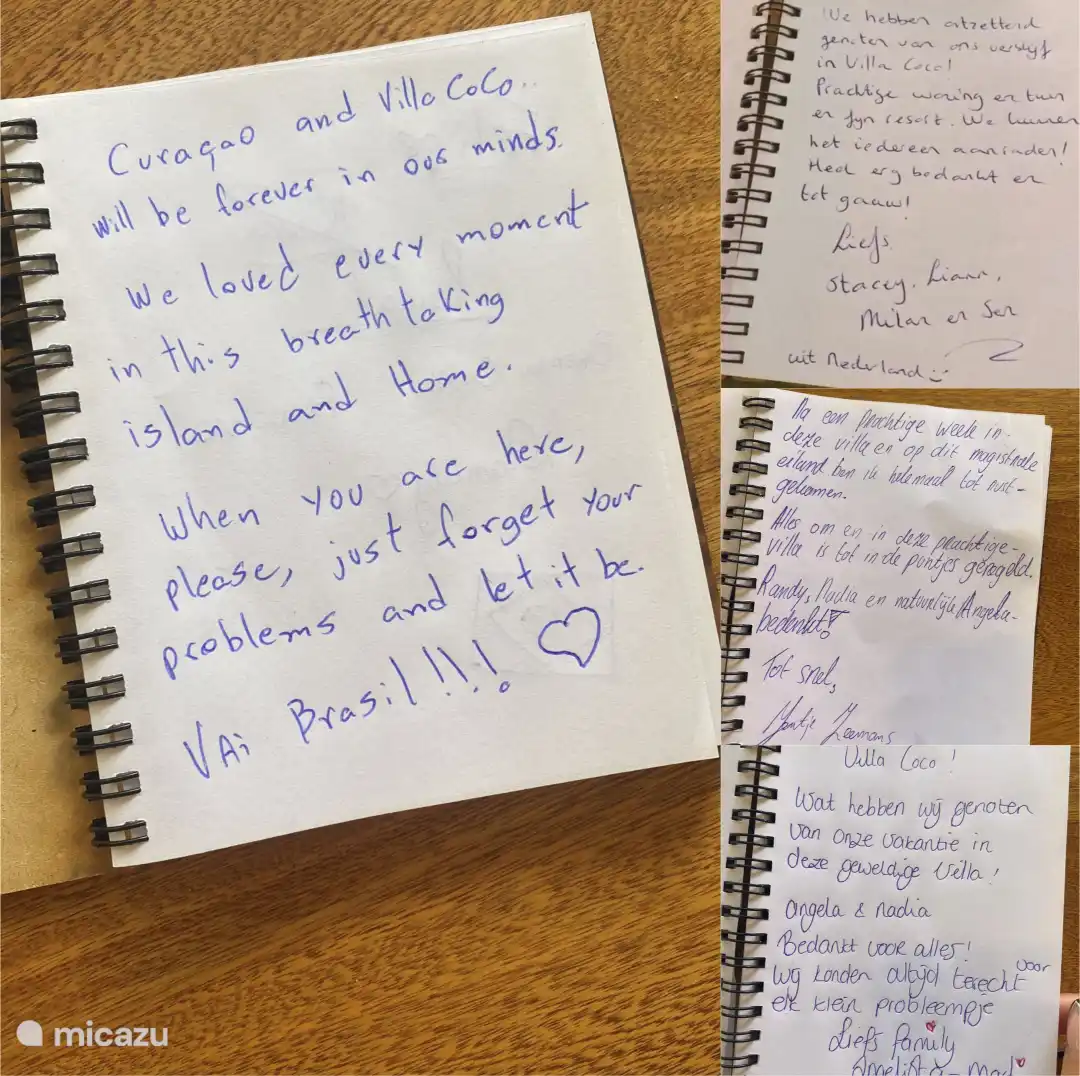 Curaçao and Villa CoCo..
will be forever in our minds.
We loved every moment
in this breathtaking
island and Home.
When you are here,
please, just forget your
problems and let it be.
VAi Brasil!!!
We hebben ontzettend
genoten van ons verblijf
in Villa Coco!
Prachtige woning en tuin
en fijn resort. We kunnen
het iedereen aanraden!
Heel erg bedankt en
tot gauw!
Liefs,
Stacey, Liann,
Milan en Sen
uit Nederland
Na een prachtige week in
deze villa en op dit magistrale
eiland ben ik helemaal tot rust-
gekomen.
Alles om en in deze prachtige-
villa is tot in de puntjes geregeld.
Randy, Nadia en natuurlijk Angela-
bedankt!
Tot snel,
Zeemans
Villa Coco!
Wat hebben wij genoten
van onze vakantie in
deze geweldige Villa!
Angela & nadia
Bedankt voor alles!
Wij konden altijd terecht voor
elk klein probleempje
Liefs family
micazu